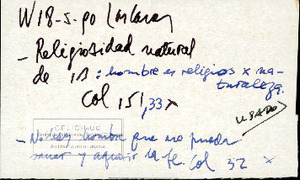 W18-5-90 Las Casas
- Religiosidad natural
de : hombre es religios x na-
turaleza.
Col 151, 33 x
USADO
- No hay hombre que no pueda
y la fe. Col 32 x